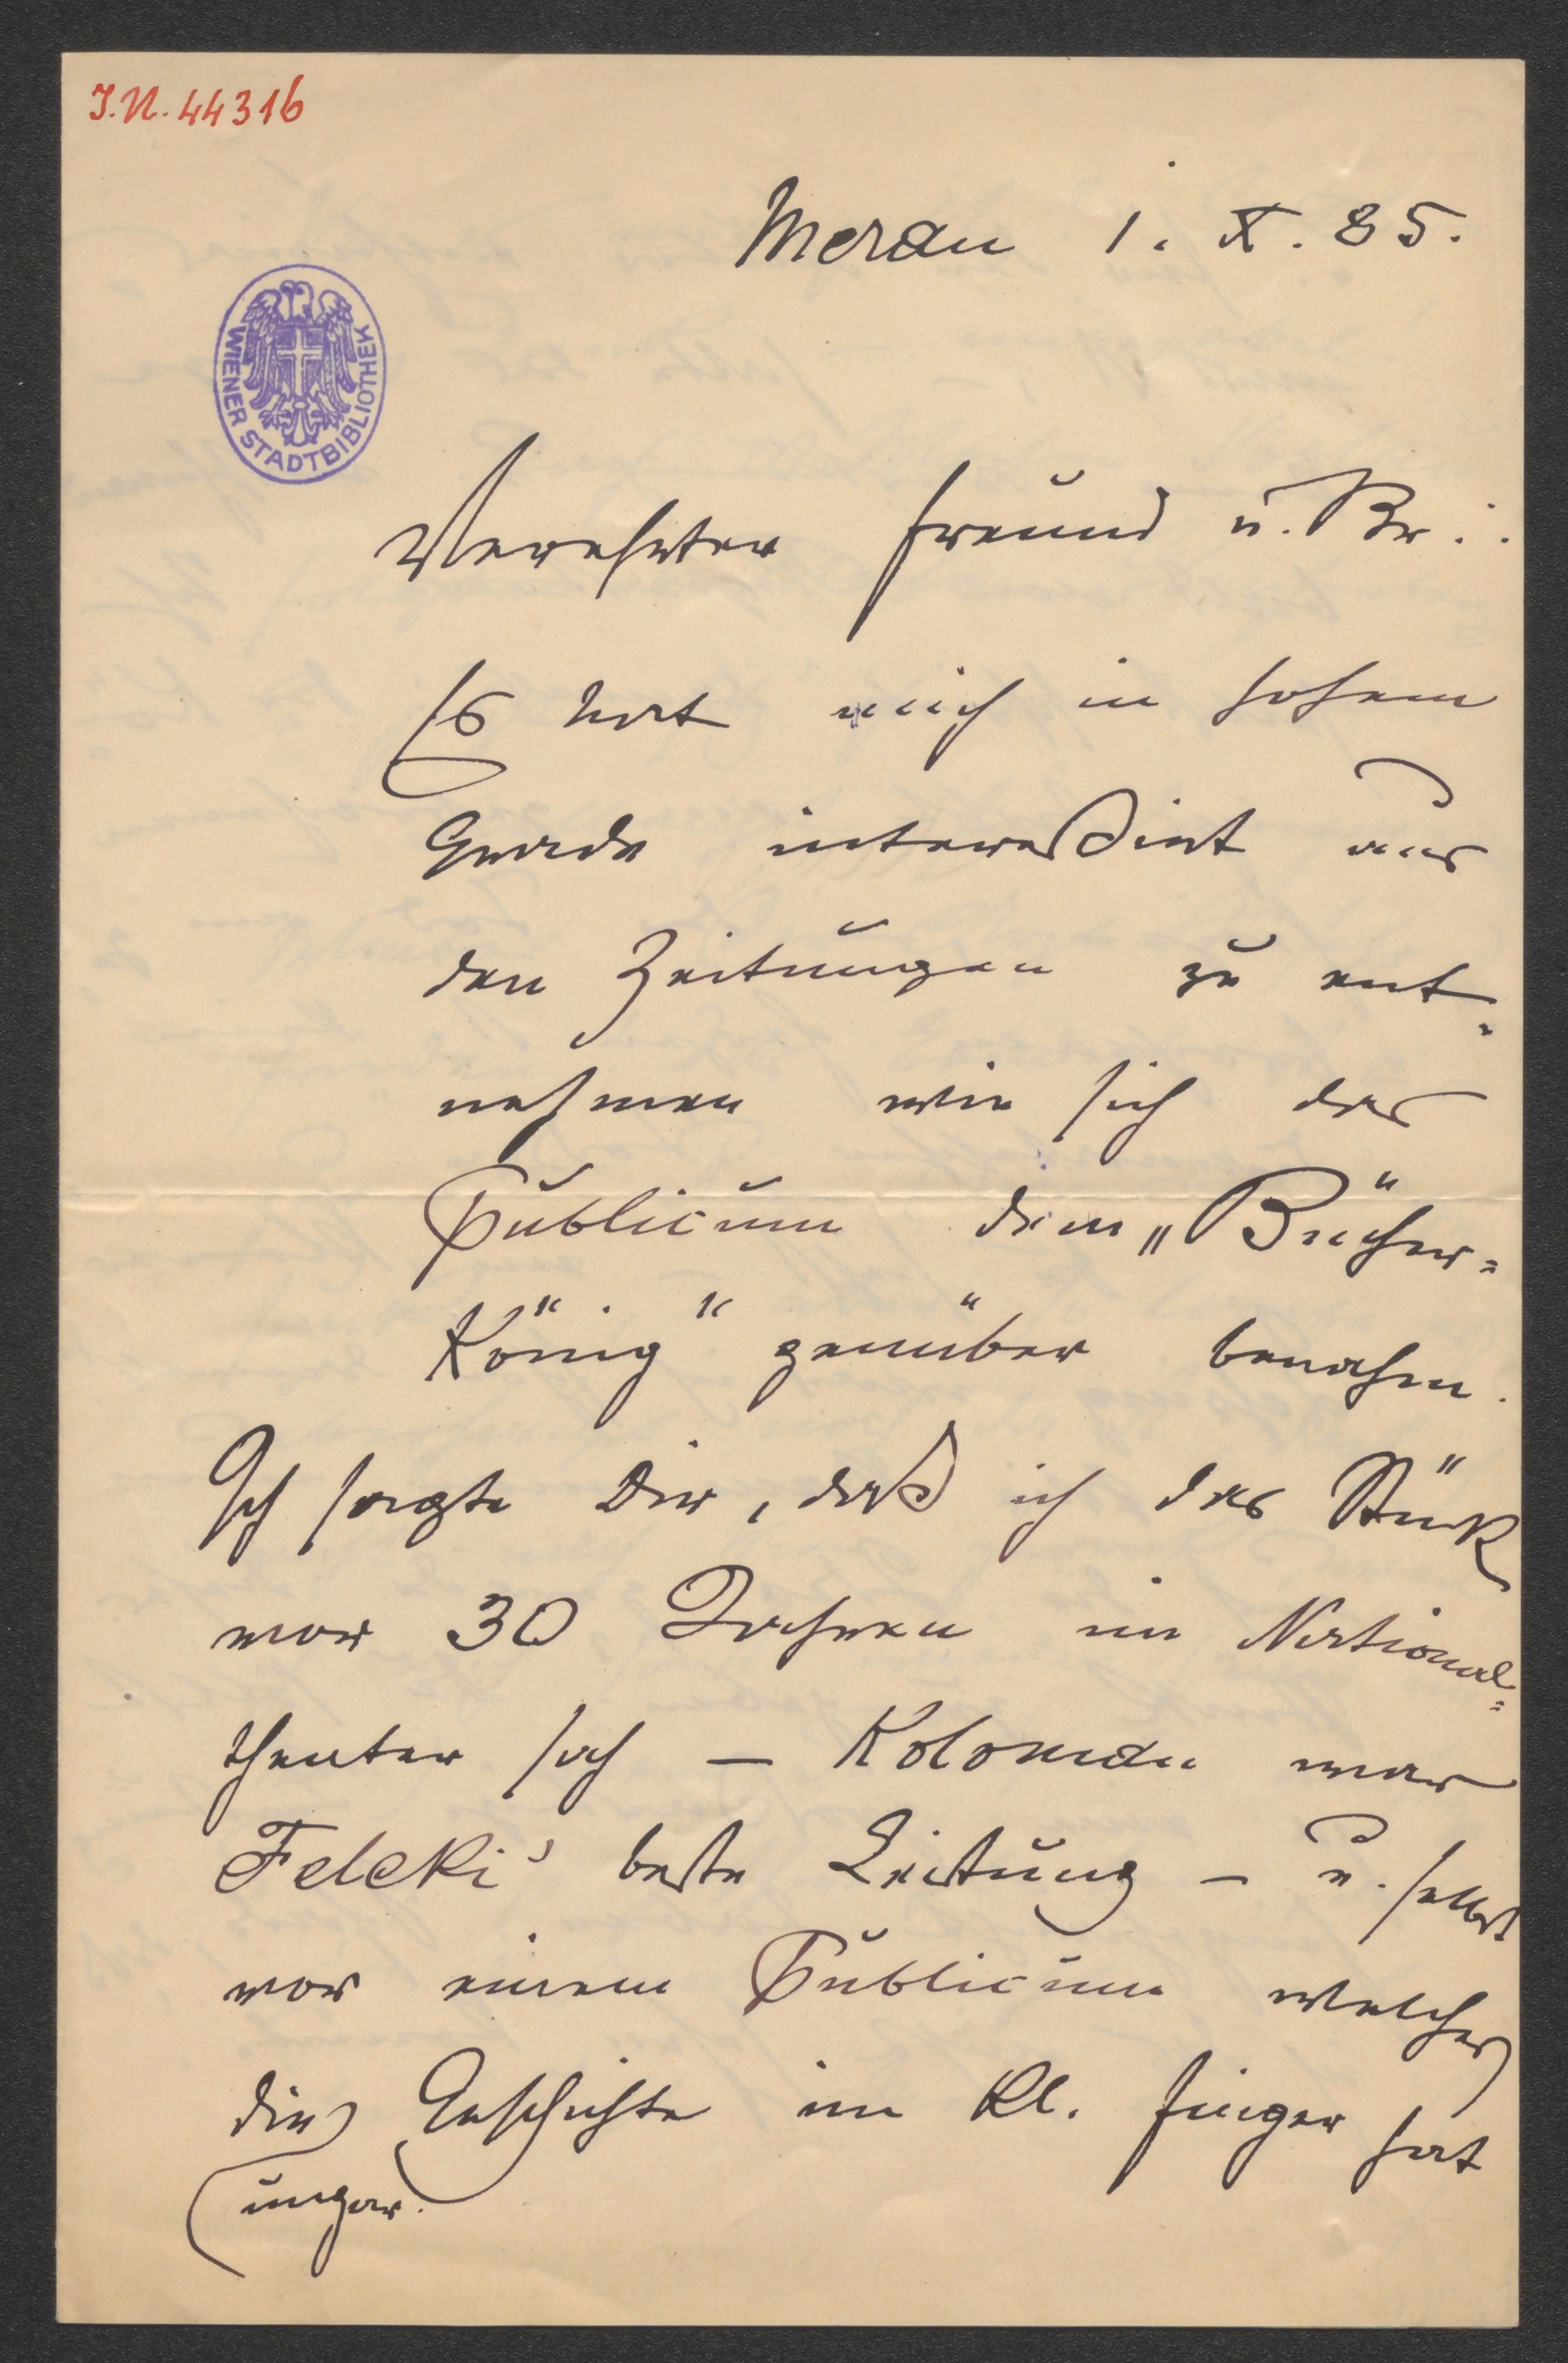 I.N. 44316
Meran 1. X. 85.
WIENER STADTBIBLIOTHEK
Verehrter Freund u. Br∴
Es hat mich in hohem
Grade interessirt aus
den Zeitungen zu ent-
nehmen wie sich das
Publicum dem „Bücher-
König" genüber benahm.
Ich sagte Dir, daß ich das Stück
vor 30 Jahren im National-
theater sah – Koloman war
Feleki's beste Leistung – u. selbst
vor einem Publicum welches
die Geschichte im kl. Finger hat
(ungar.